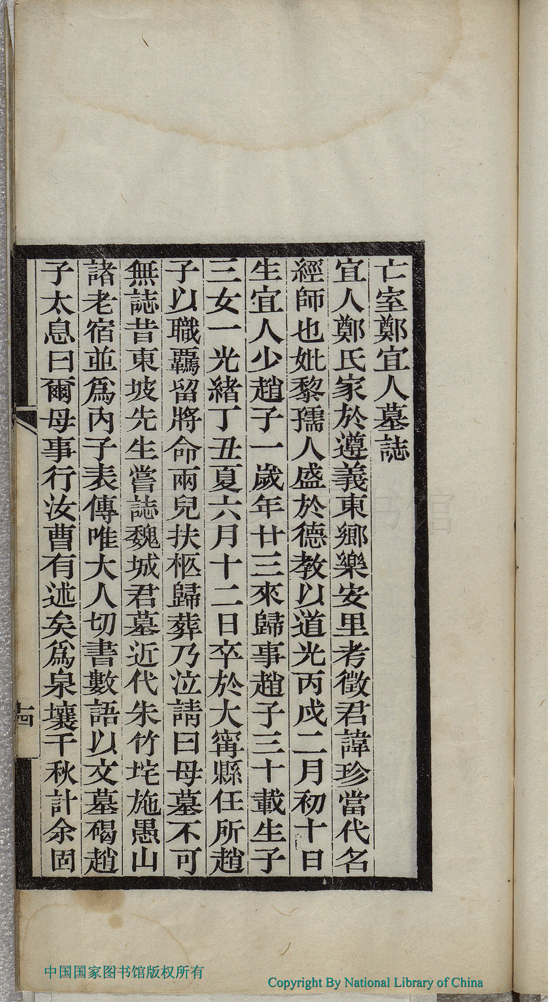 亡室鄭宜人墓誌
宜人鄭氏家於遵義東鄉樂安里考徵君諱珍當代名
經師也妣黎孺人盛於德教以道光丙戌二月初十日
生宜人少趙子一歲年廿三來歸事趙子三十載生子
三女一光緒丁丑夏六月十二日卒於大甯縣任所趙
子以職羈留將命兩兒扶柩歸葬乃泣請曰母墓不可
無誌昔東坡先生嘗誌魏城君墓近代朱竹垞施愚山
諸老宿並爲內子表傳唯大人切書數語以文墓碣趙
子太息曰爾母事行汝曹有述矣爲泉壤千秋計余固
十四
中国国家图书馆版权所有
Copyright By National Library of China